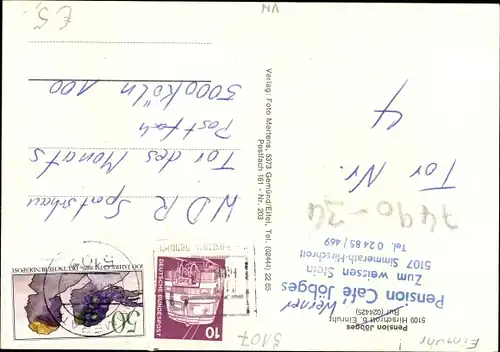 Pension Jöbges
5109 Hirschrott b. Einruhr
Ruf (02425)
Werner
Pension Café Jöbges
Zum weissen Stein
5107 Simmerath-Hirschrott
Tel. 0 24 85 / 469
7490-34
Tor Nr. 4
Verlag: Foto Mertens, 5373 Gemünd/Eifel, Tel. (02444) 22 65
Postfach 161 - Nr. 203
10
DEUTSCHE BUNDESPOST
50
DEUTSCHE BUNDESPOST
5107
WDR Sportschau
Tor des Monats
Postfach
5000 Köln 100
€ 5,
VN